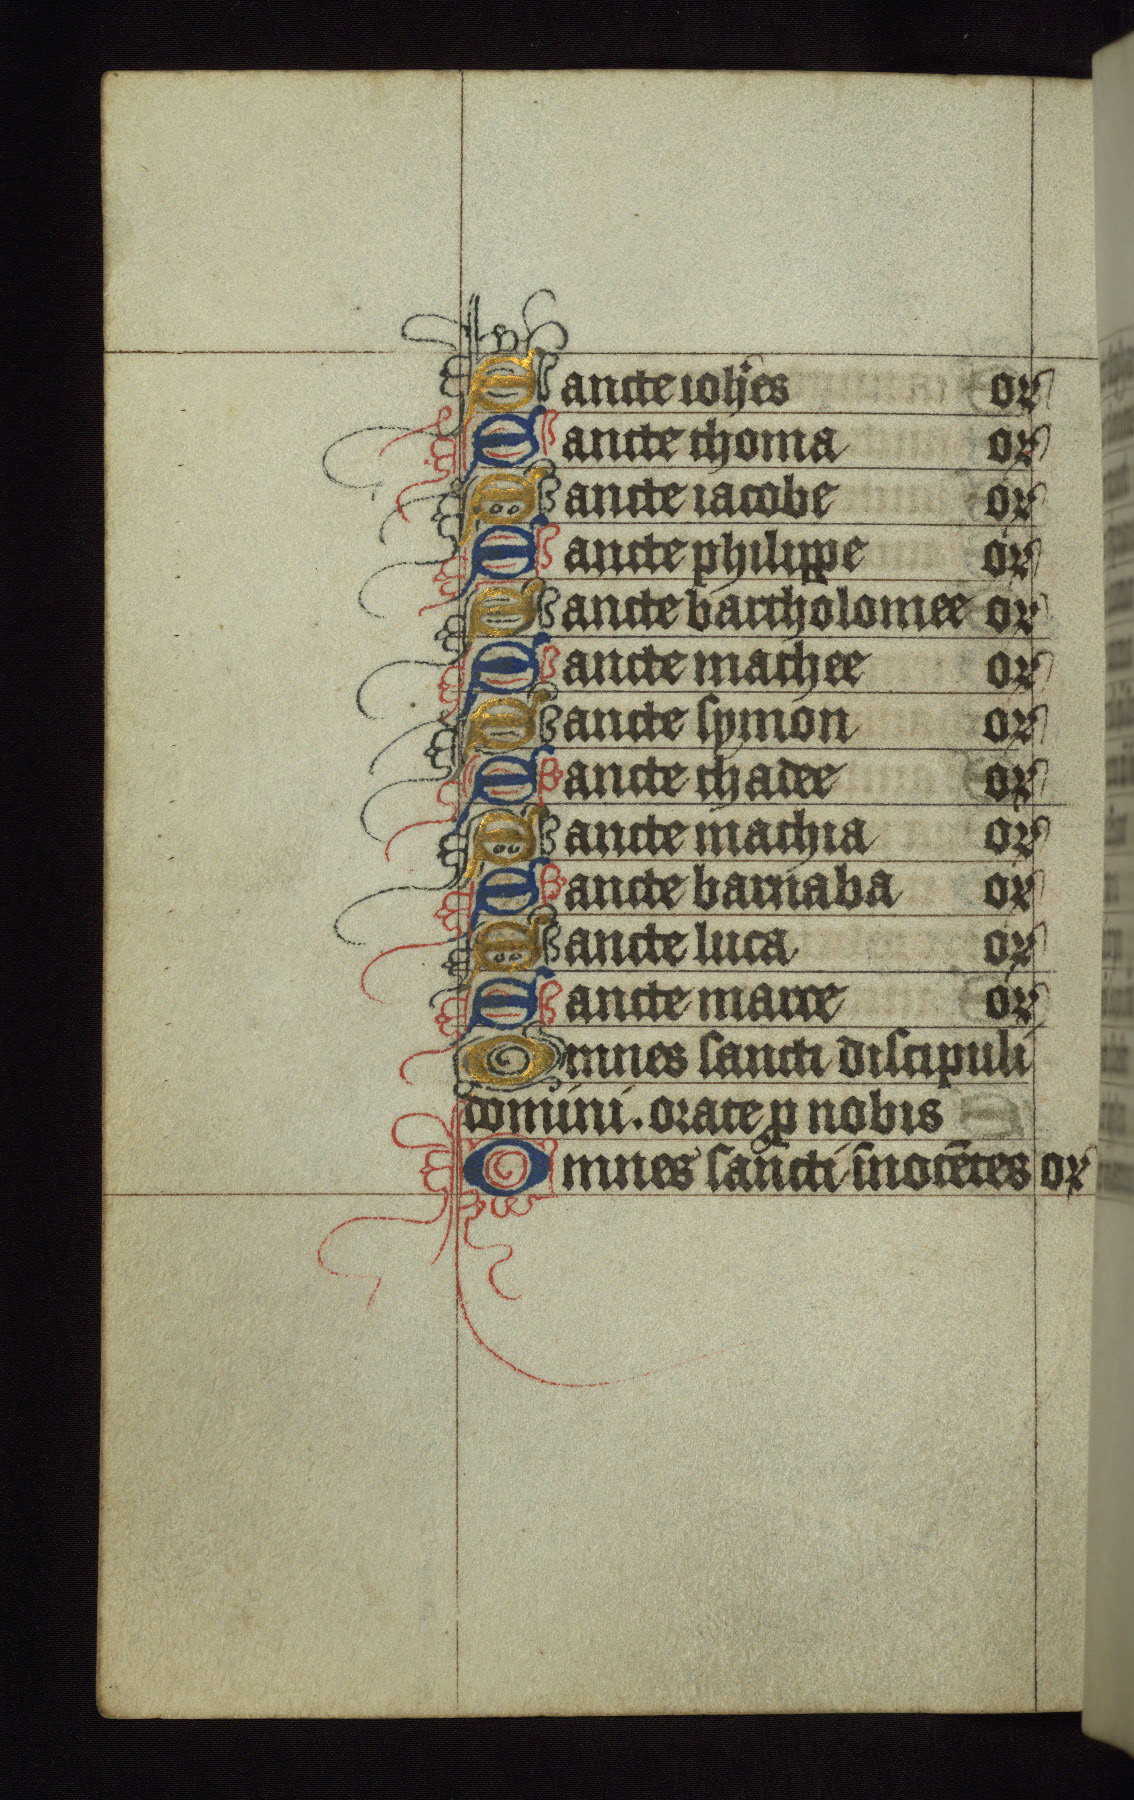 Sancte ioh̄es or
Sancte thoma or
Sancte iacobe or
Sancte philippe or
Sancte bartholomee or
Sancte mathee or
Sancte symon or
Sancte thadee or
Sancte mathia or
Sancte barnaba or
Sancte luca or
Sancte marce or
Omnes sancti discipuli
domini. orate ꝓ nobis
Omnes sancti īnocētes or